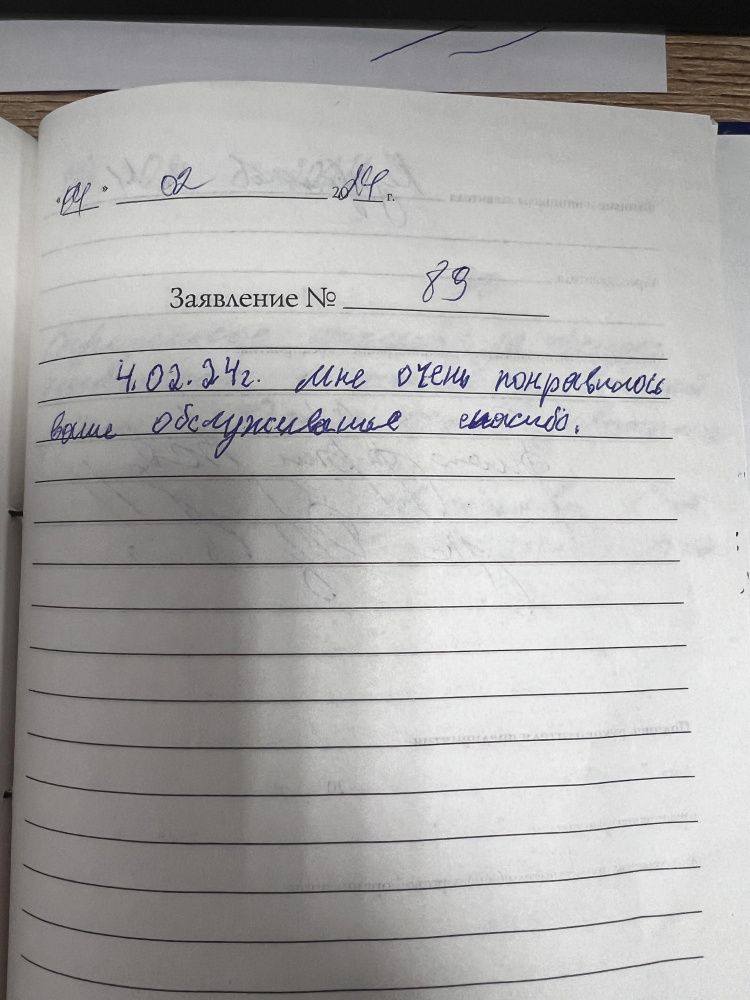 «04» 02 2024 г.
Заявление № 89
4.02.24г. Мне очень понравилось
ваше обслуживание спасибо.